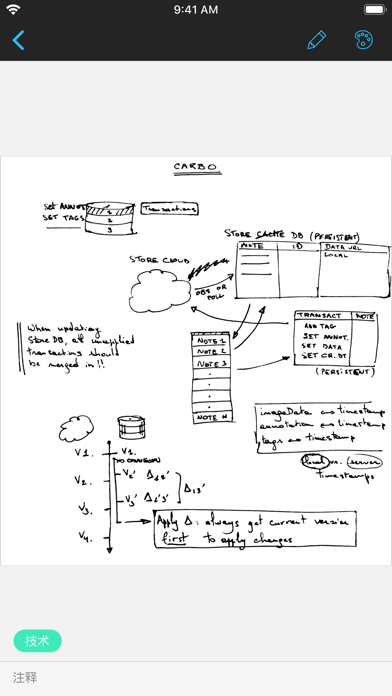 9:41 AM
CARBO
Set ANNOT.
SET TAGS
1
2
3
Transactions
STORE CACHE DB (PERSISTENT)
NOTE
ID
DATA URL
LOCAL
STORE CLOUD
OBS OR
POLL
When updating
Store DB, all unapplied
transactions should
be merged in!!
TRANSACT
NOTE
ADD TAG
SET ANNOT.
SET DATA
SET CR. DT
(PERSISTENT)
NOTE 1
NOTE 2
NOTE 3
NOTE N
imageData ↔ timestamp
annotation ↔ timestamp
tags ↔ timestamp
local vs. server
timestamps
V1.
V1.
NO CONNECTION
V2.
V2'
Δ12'
V3.
V3'
Δ2'3'
Δ13'
V4.
Apply Δ: always get current version
first to apply changes
技术
注释